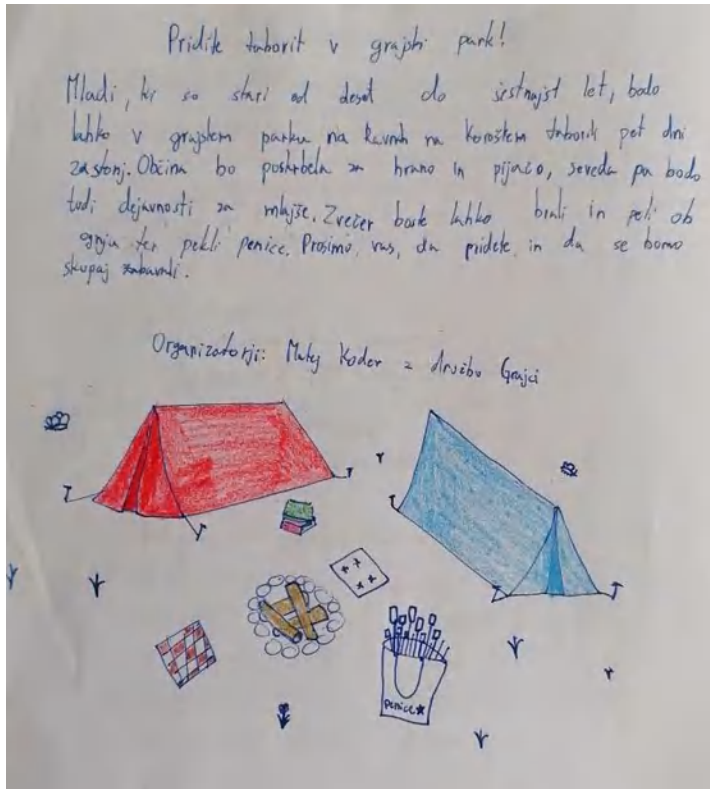 Pridite taborit v grajski park!
Mladi, ki so stari od deset do šestnajst let, bodo
lahko v grajskem parku na Ravnah na Koroškem taborili pet dni
zastonj. Občina bo poskrbela za hrano in pijačo, seveda pa bodo
tudi dejavnosti za mlajše. Zvečer boste lahko brali in peli ob
ognju ter pekli penice. Prosimo vas, da pridete in da se bomo
skupaj zabavali.
Organizatorji: Matej Koder z družbo Grajci
penice